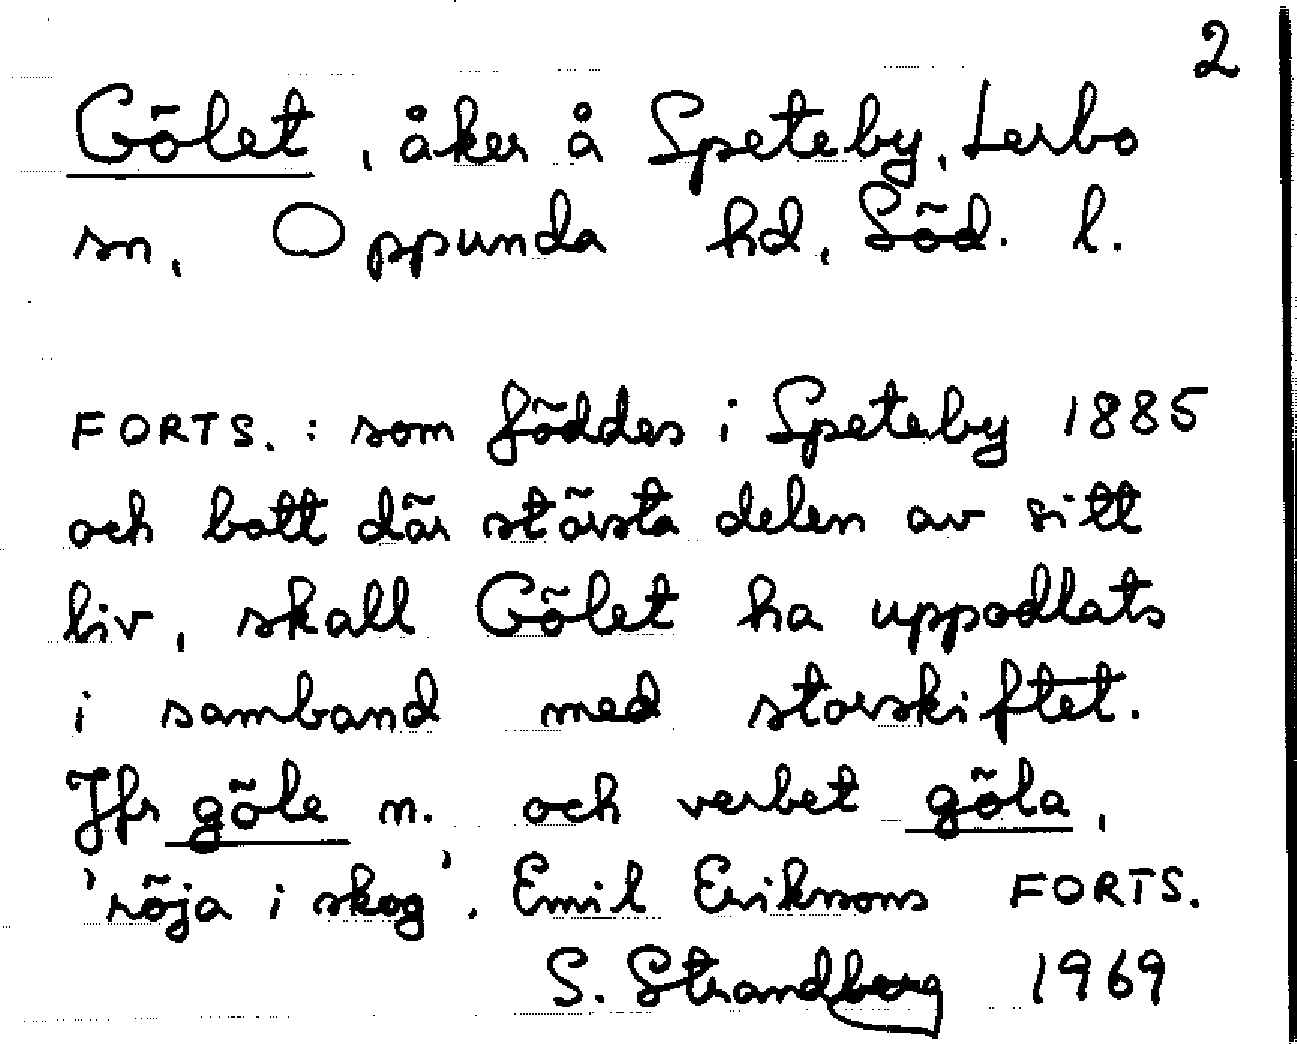 2
Gölet, åker å Speteby, Lerbo
sn, Oppunda hd, Söd. l.
FORTS. : som föddes i Speteby 1885
och bott där största delen av sitt
liv, skall Gölet ha uppodlats
i samband med storskiftet.
Jfr göle n. och verbet göla,
'röja i skog'. Emil Erikssons FORTS.
S. Strandberg 1969